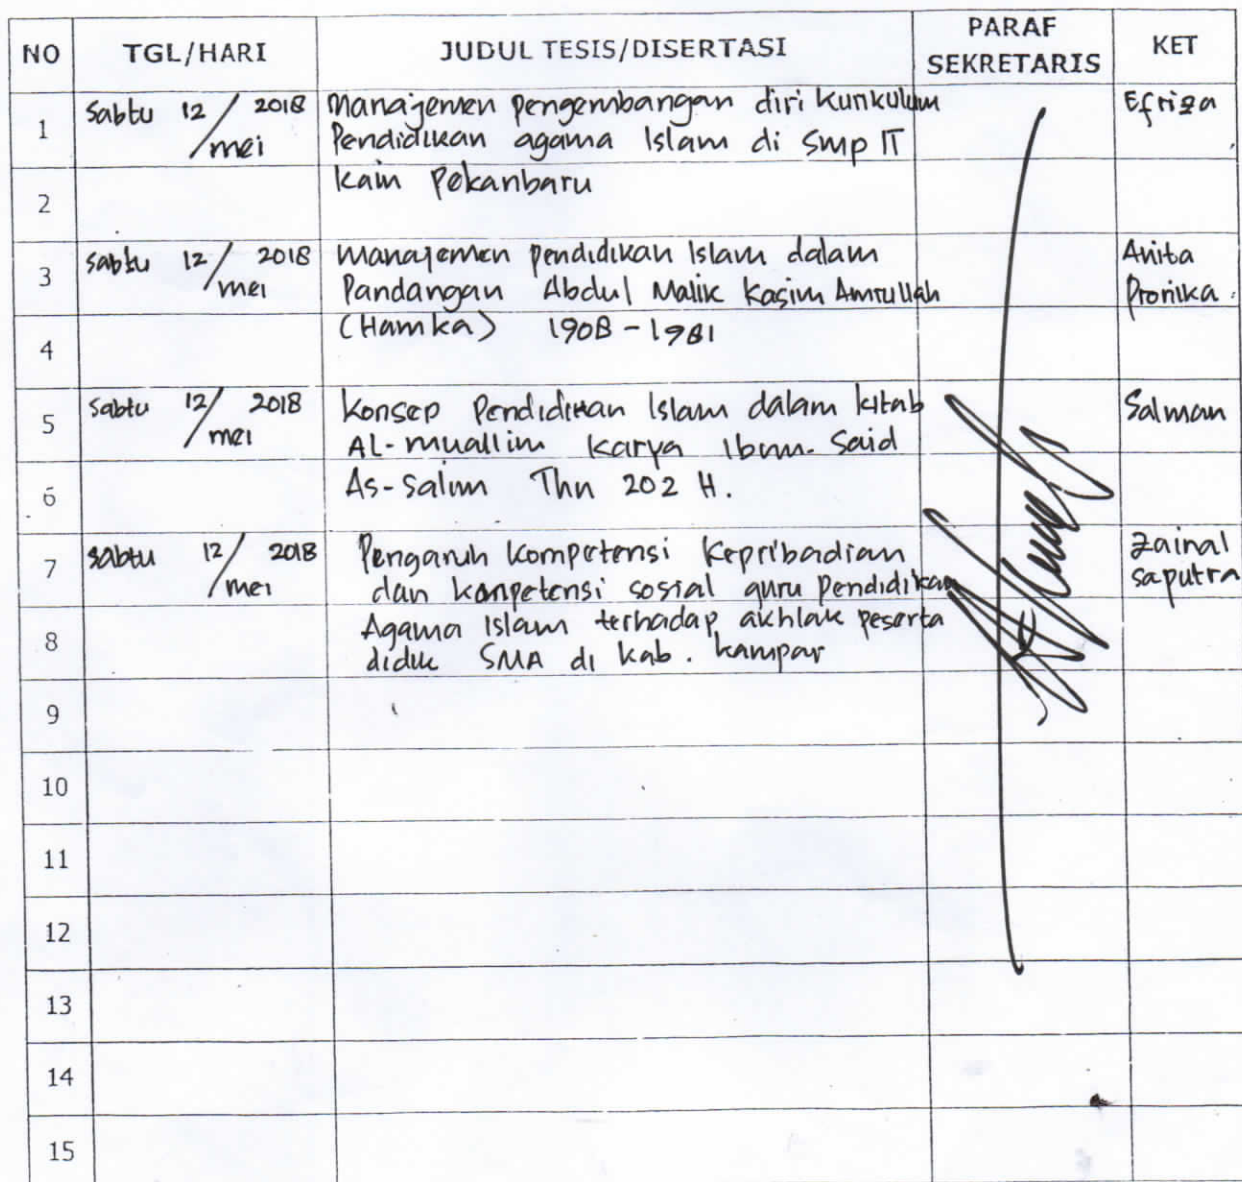 NO TGL/HARI JUDUL TESIS/DISERTASI PARAF SEKRETARIS KET
1 Sabtu 12/mei 2018 Manajemen pengembangan diri kurikulum Efriza
Pendidikan agama Islam di Smp IT
2 kain pekanbaru
3 sabtu 12/mei 2018 Manajemen pendidikan Islam dalam Anita
Pandangan Abdul Malik Kasim Amrullah Pronika
4 (Hamka) 1908-1981
5 Sabtu 12/mei 2018 Konsep Pendidikan Islam dalam kitab Salman
AL-muallim karya Ibnu Said
6 As-Salim Thn 202 H.
7 sabtu 12/mei 2018 Pengaruh kompetensi kepribadian Zainal
dan kompetensi sosial guru pendidikan saputra
8 Agama Islam terhadap akhlak peserta
didik SMA di kab. kampar
9
10
11
12
13
14
15